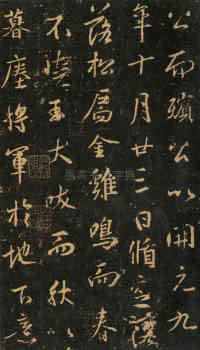 公而殞公以開元九
年十月廿三日脩
落松扃金雞鳴而春
不曉玉犬吠而秋以
暮塵將軍於地下意